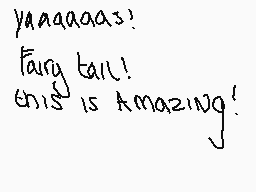 yaaaaaas!
Fairy tail!
this is Amazing!